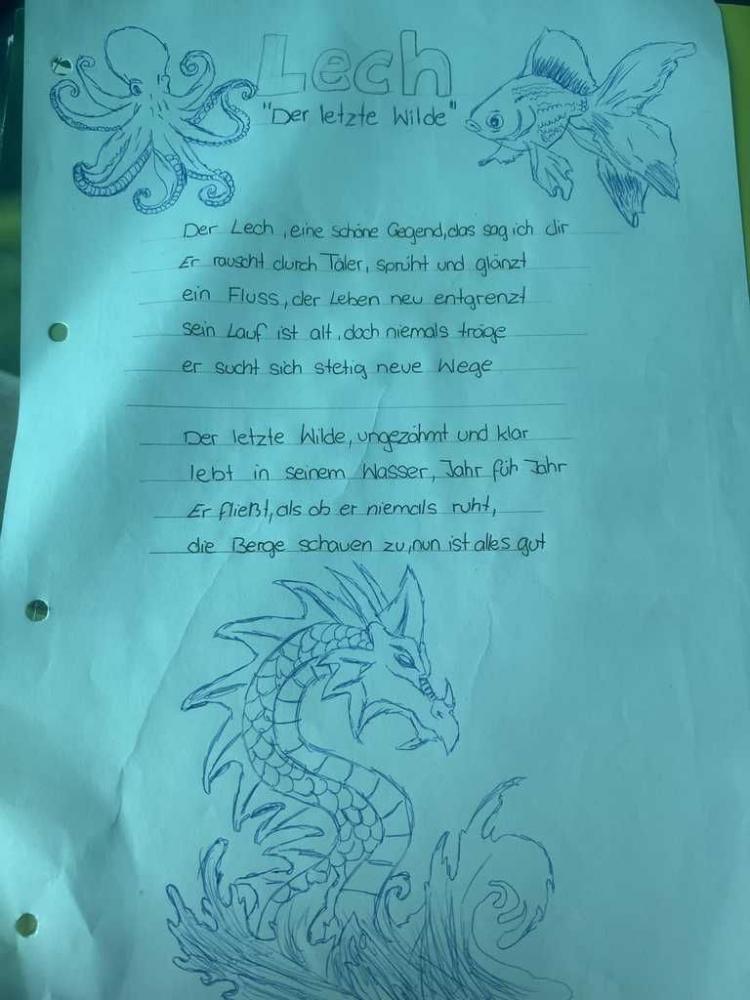 Lech
"Der letzte Wilde"
Der Lech, eine schöne Gegend, das sag ich dir
Er rauscht durch Täler, sprüht und glänzt
ein Fluss, der Leben neu entgrenzt
sein Lauf ist alt, doch niemals träge
er sucht sich stetig neue Wege
Der letzte Wilde, ungezähmt und klar
lebt in seinem Wasser, Jahr füh Jahr
Er fließt, als ob er niemals ruht,
die Berge schauen zu, nun ist alles gut